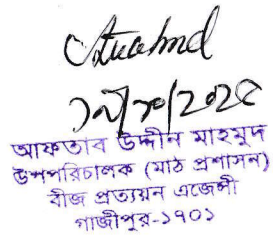 আফতাব উদ্দীন মাহমুদ
উপপরিচালক (মাঠ প্রশাসন)
বীজ প্রত্যয়ন এজেন্সী
গাজীপুর-১৭০১